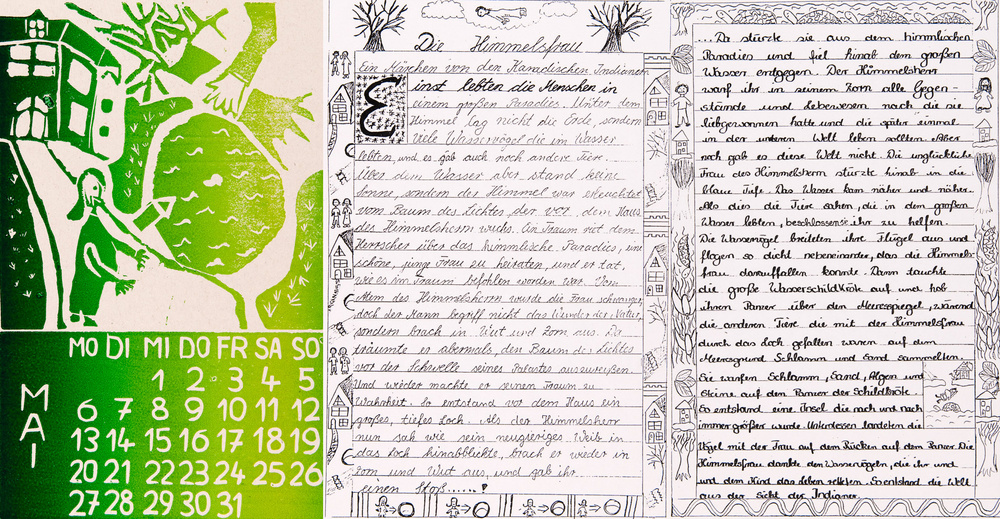 MO DI MI DO FR SA SO
MAI
1 2 3 4 5
6 7 8 9 10 11 12
13 14 15 16 17 18 19
20 21 22 23 24 25 26
27 28 29 30 31
Die Himmelsfrau
Ein Märchen von den Kanadischen Indianern
Einst lebten die Menschen in
einem großen Paradies. Unter dem
Himmel lag nicht die Erde, sondern
viele Wasservögel die im Wasser
lebten, und es gab auch noch andere Tiere.
Über dem Wasser aber stand keine
Sonne, sondern des Himmel war erleuchtet
vom Baum des Lichtes der vor dem Haus
des Himmelsherrn wuchs. Im Traum riet dem
Herrscher über das himmlische Paradies, eine
schöne, junge Frau zu heiraten, und er tat,
wie es im Traum befohlen worden war. Vom
Atem des Himmelsherrn wurde die Frau schwanger,
doch der Mann begriff nicht das Wunder der Natur,
sondern brach in Wut und Zorn aus. Da
träumte er abermals, den Baum des Lichtes
vor der Schwelle seines Palastes auszureißen.
Und wieder machte er seinen Traum zu
Wahrheit. So entstand vor dem Haus ein
großes, tiefes Loch. Als der Himmelsherr
nun sah wie sein neugieriges Weib in
das Loch hinabblickte, brach er wieder in
Zorn und Wut aus, und gab ihr
einen Stoß......!
...Da stürzte sie aus dem himmlischen
Paradies und fiel hinab dem großen
Wasser entgegen. Der Himmelsherr
warf ihr in seinem Zorn alle Gegen-
stände und Lebewesen nach die sie
liebgewonnen hatte und die später einmal
in der unteren Welt leben sollten. Aber
noch gab es diese Welt nicht. Die unglückliche
Frau des Himmelsherrn stürzte hinab in die
blaue Tiefe. Das Wasser kam näher und näher.
Als dies die Tiere sahen, die in dem großen
Wasser lebten, beschlossen sie ihr zu helfen.
Die Wasservögel breiteten ihre Flügel aus und
flogen so dicht nebeneinander, das die Himmels-
frau darauffallen konnte. Dann tauchte
die große Wasserschildkröte auf und hob
ihren Panzer über den Meeresspiegel, während
die anderen Tiere die mit der Himmelsfrau
durch das Loch gefallen waren auf dem
Meersgrund Schlamm und Sand sammelten.
Sie warfen Schlamm, Sand, Algen und
Steine auf den Panzer der Schildkröte.
So entstand eine Insel die nach und nach
immer größer wurde. Unterdessen landeten die
Vögel mit der Frau auf dem Rücken auf dem Panzer. Die
Himmelsfrau dankte den Wasservögeln, die ihr und
und dem Kind das Leben retteten. So entstand die Welt
aus der Sicht der Indianer.